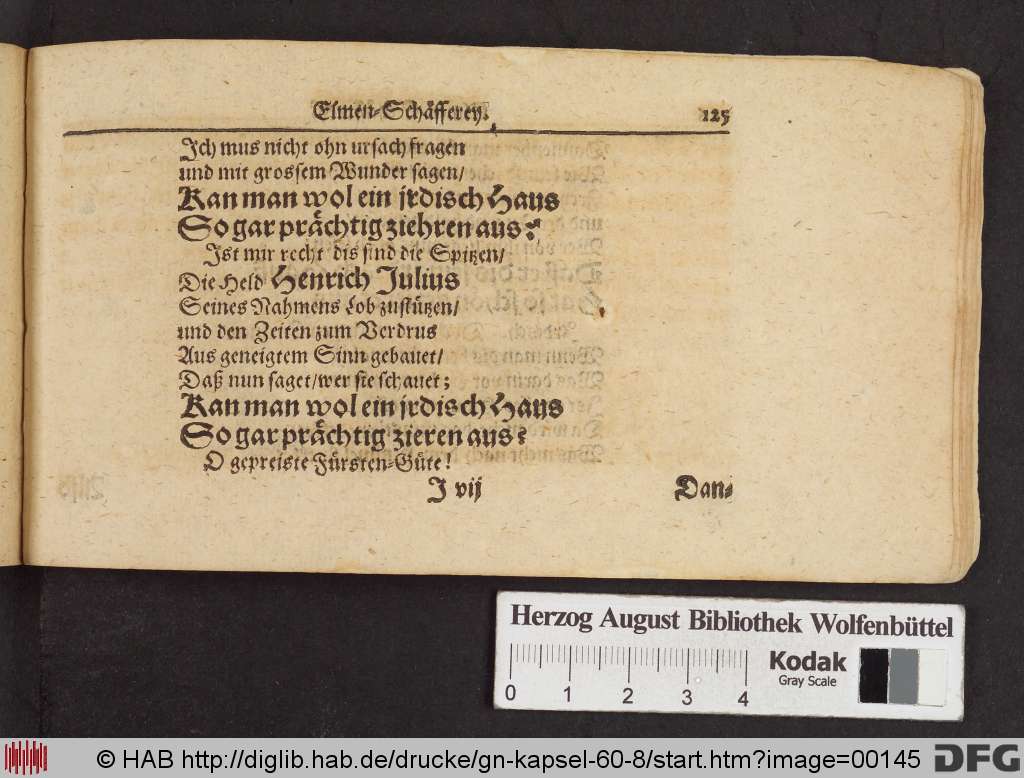 Elmen-Schäfferey. 125
Ich mus nicht ohn ursach fragen
und mit grossem Wunder sagen/
Kan man wol ein jrdisch Haus
So gar prächtig ziehren aus?
Ist mir recht dis sind die Spitzen/
Die Held Henrich Julius
Seines Nahmens Lob zustützen/
und den Zeiten zum Verdrus
Aus geneigtem Sinn gebauet/
Daß nun saget/wer sie schauet;
Kan man wol ein jrdisch Haus
So gar prächtig zieren aus?
O gepreiste Fürsten-Güte!
J vij Dan-
Herzog August Bibliothek Wolfenbüttel
Kodak
Gray Scale
0 1 2 3 4
© HAB http://diglib.hab.de/drucke/gn-kapsel-60-8/start.htm?image=00145
DFG